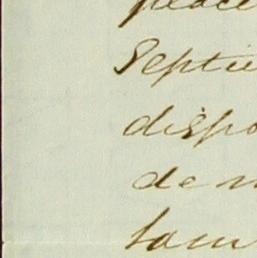 place
Septie
dispo
de n